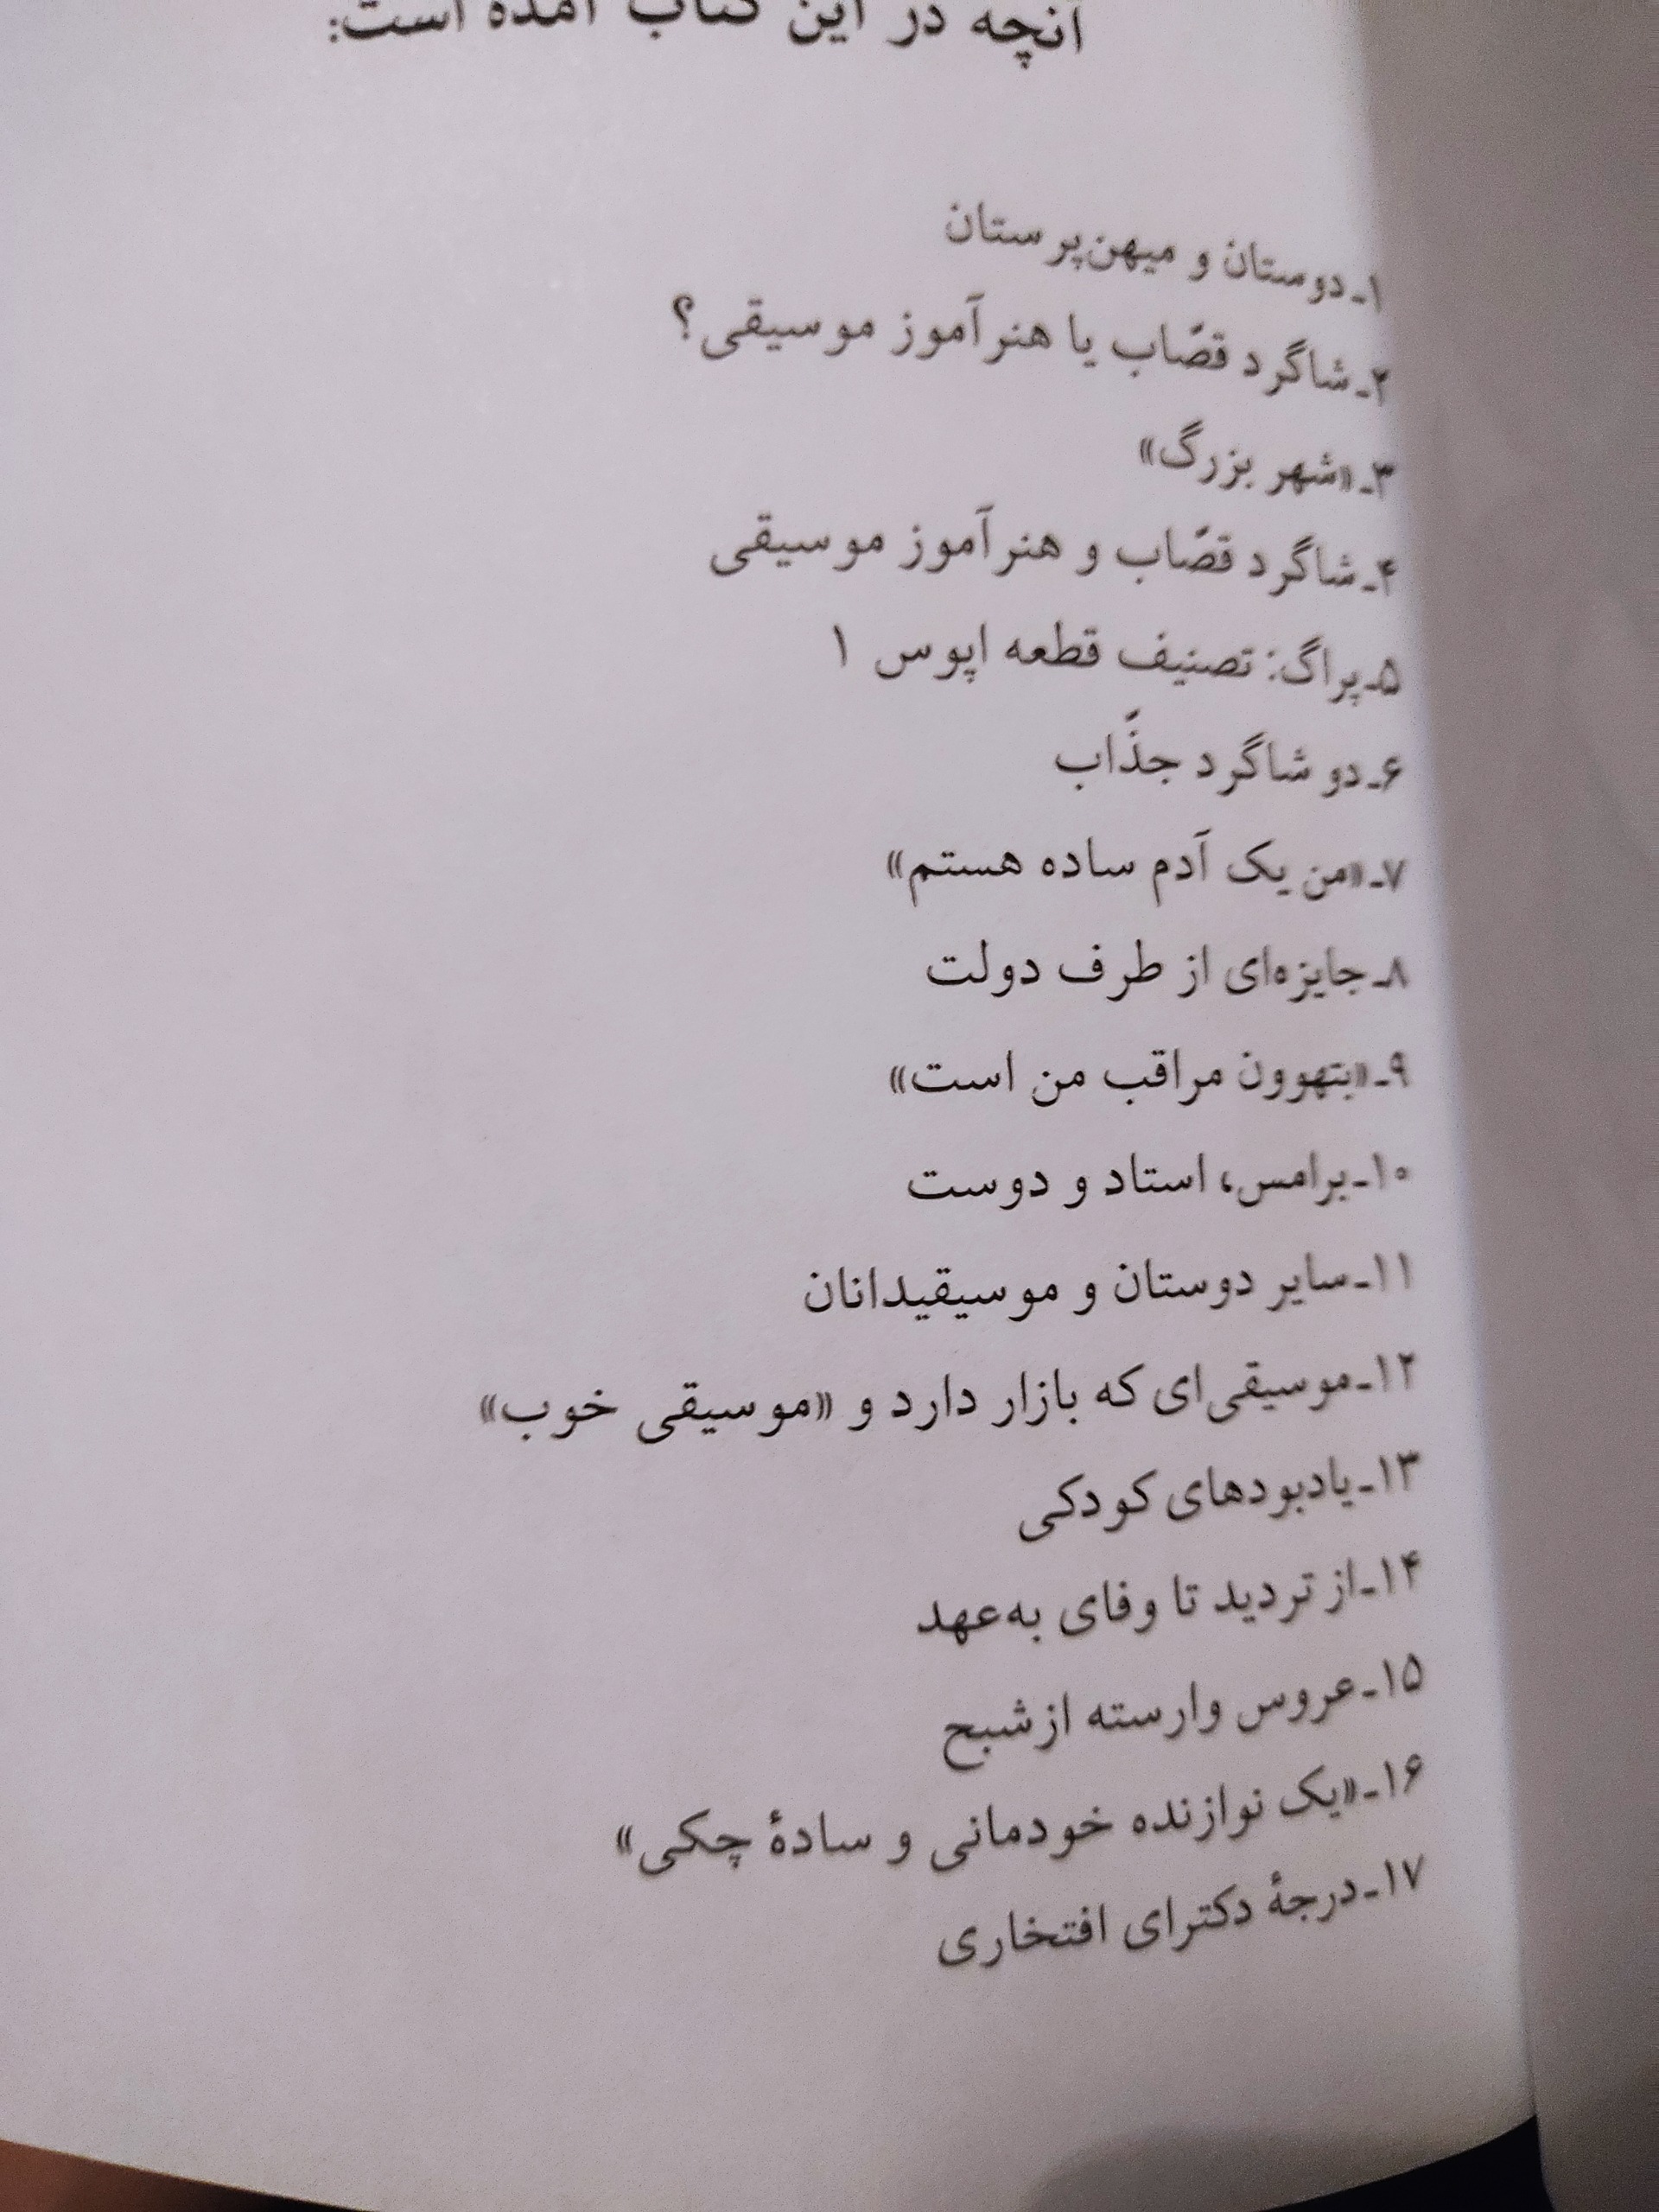 آنچه در این کتاب آمده است:
۱ـ دوستان و میهن‌پرستان
۲ـ شاگرد قصّاب یا هنرآموز موسیقی؟
۳ـ «شهر بزرگ»
۴ـ شاگرد قصّاب و هنرآموز موسیقی
۵ـ پراگ: تصنیف قطعه اپوس ۱
۶ـ دو شاگرد جذّاب
۷ـ «من یک آدم ساده هستم»
۸ـ جایزه‌ای از طرف دولت
۹ـ «بتهوون مراقب من است»
۱۰ـ برامس، استاد و دوست
۱۱ـ سایر دوستان و موسیقیدانان
۱۲ـ موسیقی‌ای که بازار دارد و «موسیقی خوب»
۱۳ـ یادبودهای کودکی
۱۴ـ از تردید تا وفای به‌عهد
۱۵ـ عروس وارسته از شبح
۱۶ـ «یک نوازنده خودمانی و سادهٔ چکی»
۱۷ـ درجهٔ دکترای افتخاری